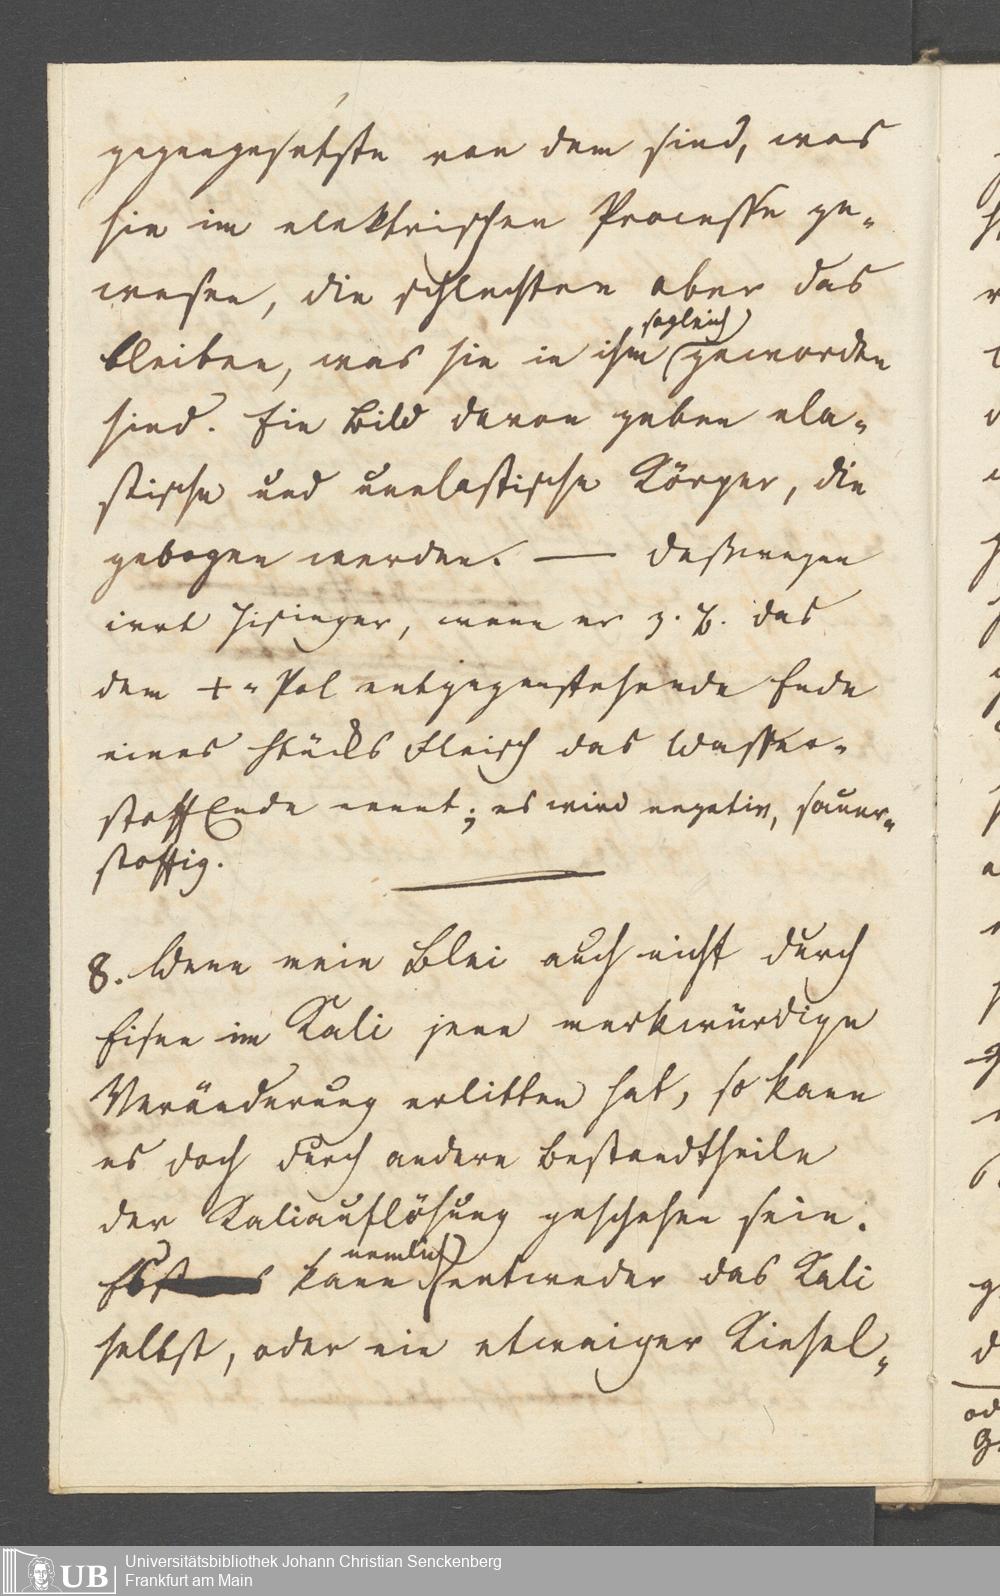 gegengesetzte von dem sind, was
sie im elektrischen Processe ge-
wesen, die schlechten aber das
sogleich
bleiben, was sie in ihm geworden
sind. Ein Bild davon geben ela-
stische und unelastische Körper, die
gebogen werden. — Deßwegen
irrt Hisinger, wenn er z. B. das
dem +-Pol entgegenstehende Ende
eines Stücks Fleisch das Wasser-
stoffEnde nennt; es wird negativ, sauer-
stoffig.
8. Wenn mein Blei auch nicht durch
Eisen im Kali jene merkwürdige
Veränderung erlitten hat, so kann
es doch durch andere Bestandtheile
der Kaliauflösung geschehen sein.
nemlich
Es kann entweder das Kali
selbst, oder ein etwaiger Kiesel-
Universitätsbibliothek Johann Christian Senckenberg
Frankfurt am Main
UB